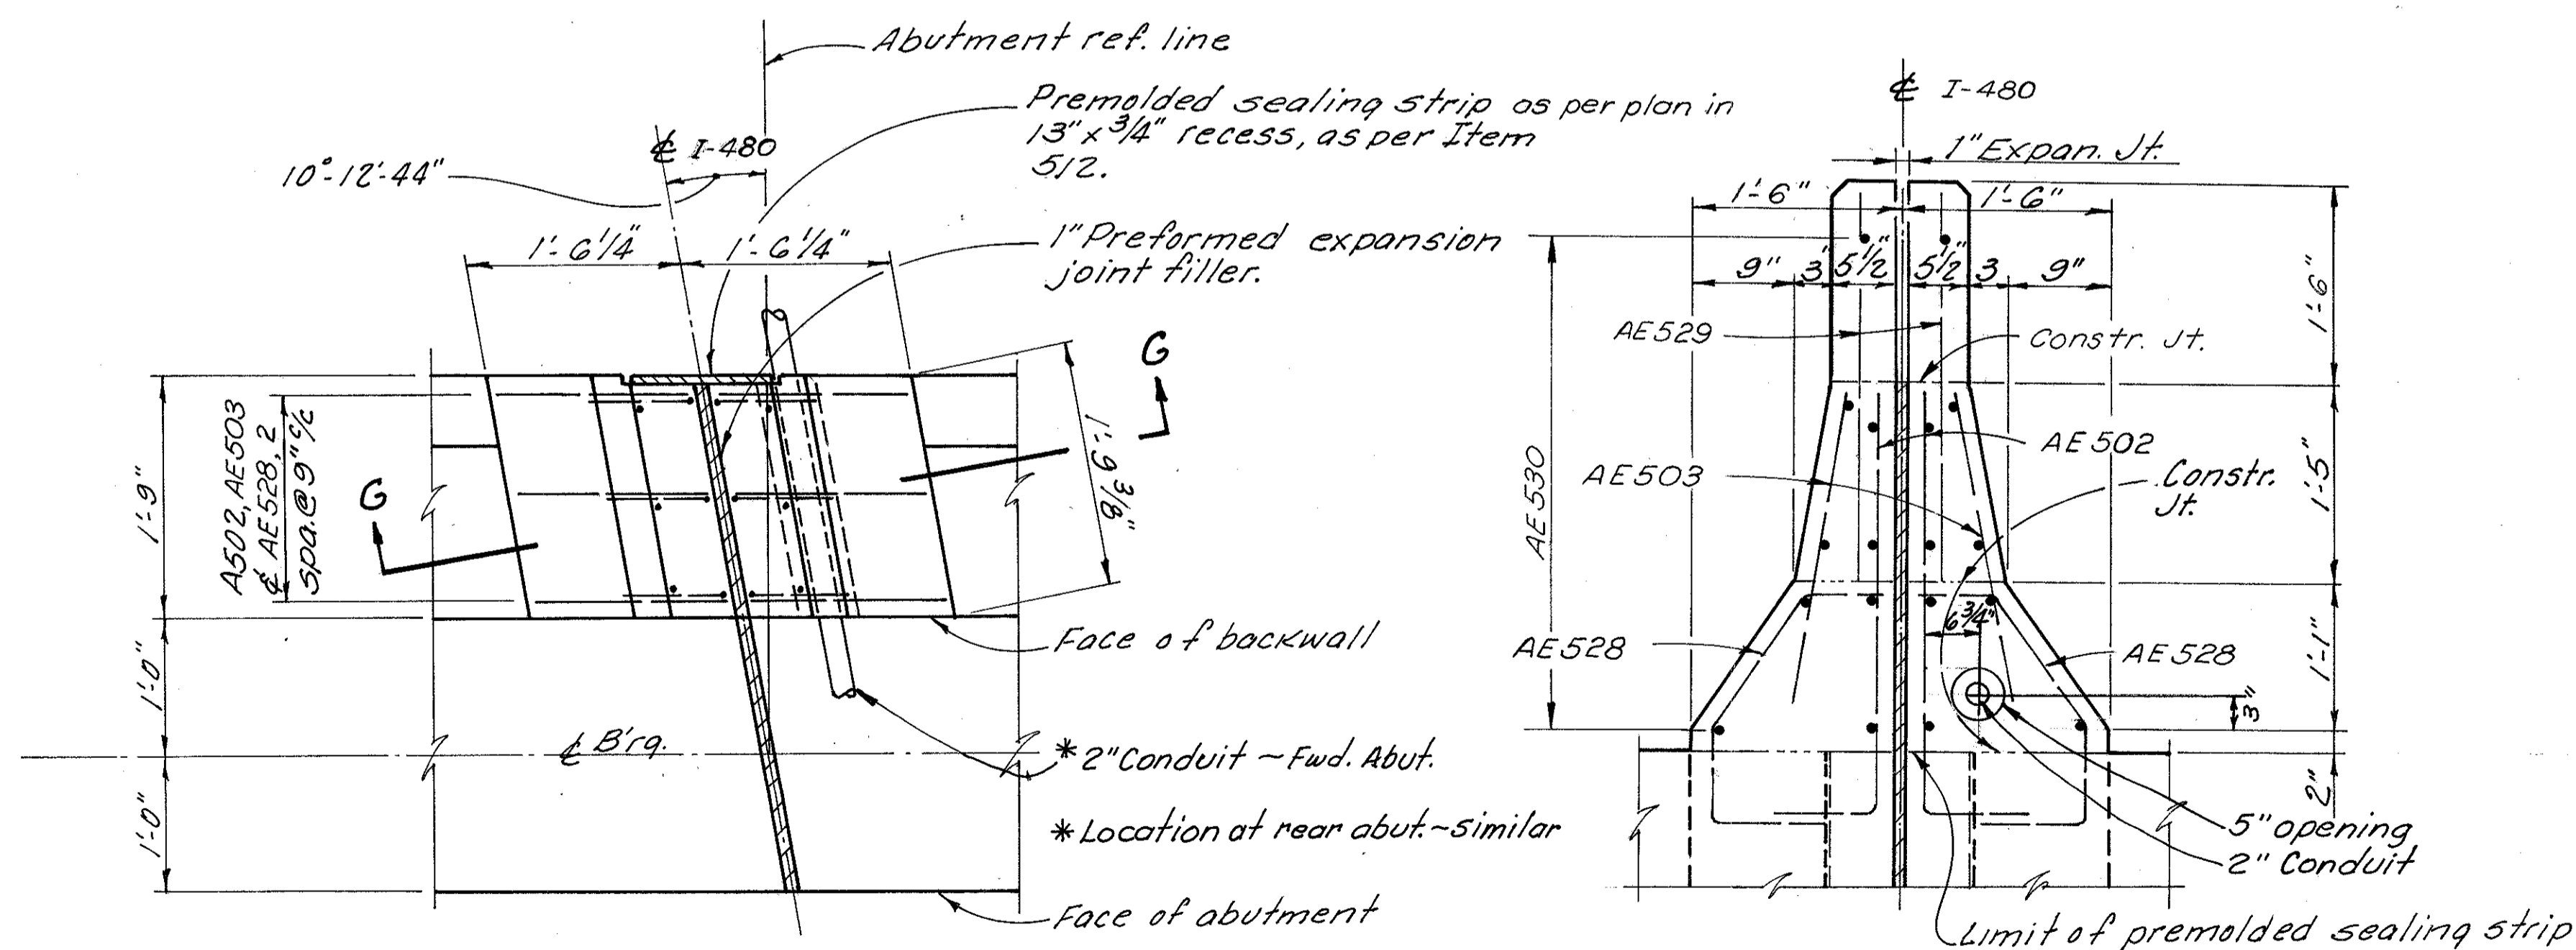 Abutment ref. line
Premolded sealing strip as per plan in
13" x 3/4" recess, as per Item
512.
℄ I-480
10°-12'-44"
1'-6 1/4"
1'-6 1/4"
1" Preformed expansion
joint filler.
G
G
1'-9 3/8"
A502, AE503
& AE528, 2
spa. @ 9" c/c
1'-9"
1'-0"
1'-0"
Face of backwall
℄ B'rg.
* 2" Conduit ~ Fwd. Abut.
* Location at rear abut. ~ similar
Face of abutment
℄ I-480
1" Expan. Jt.
1'-6"
1'-6"
9"
3"
5 1/2"
5 1/2"
3
9"
AE529
Constr. Jt.
AE502
AE503
Constr.
Jt.
AE530
6 3/4"
AE528
AE528
1'-6"
1'-5"
1'-1"
3"
2"
5" opening
2" Conduit
Limit of premolded sealing strip